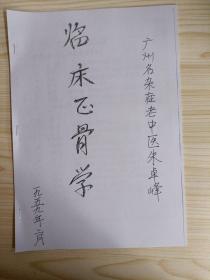 广州名杂症老中医朱卓峰
临床正骨学
一九五九年二月